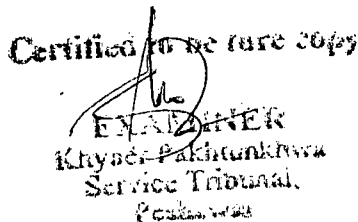 Certified to be ture copy
EXAMINER
Khyber Pakhtunkhwa
Service Tribunal,
Peshawar